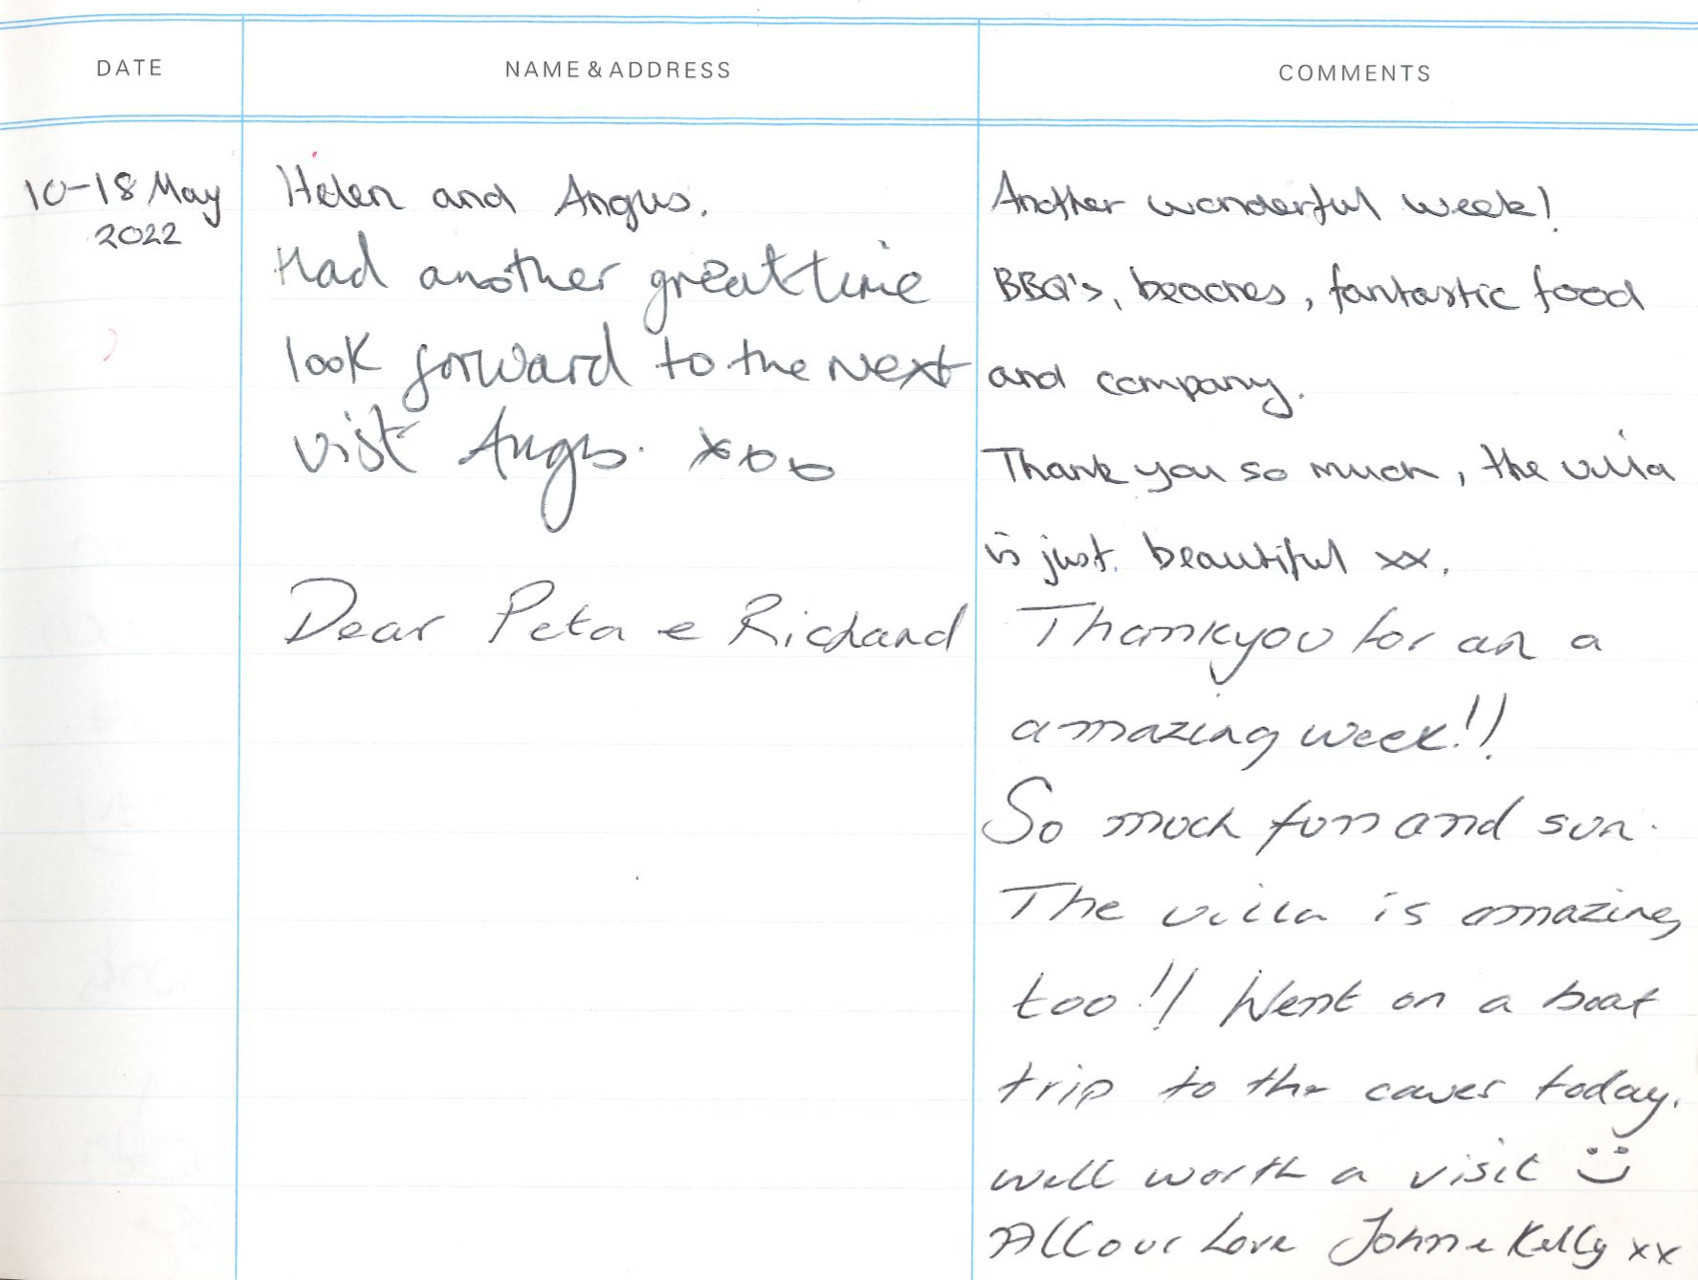 DATE
NAME & ADDRESS
COMMENTS
10-18 May
2022
Helen and Angus.
Had another great time
look forward to the next
visit Angus. xoo
Dear Peta e Richard
Another wonderful week!
BBQ's, beaches, fantastic food
and company.
Thank you so much, the villa
is just beautiful xx.
Thankyou for an a
amazing week!!
So much fun and sun.
The villa is amazing
too!! Went on a boat
trip to the caves today.
well worth a visit
All our Love John e Kelly xx